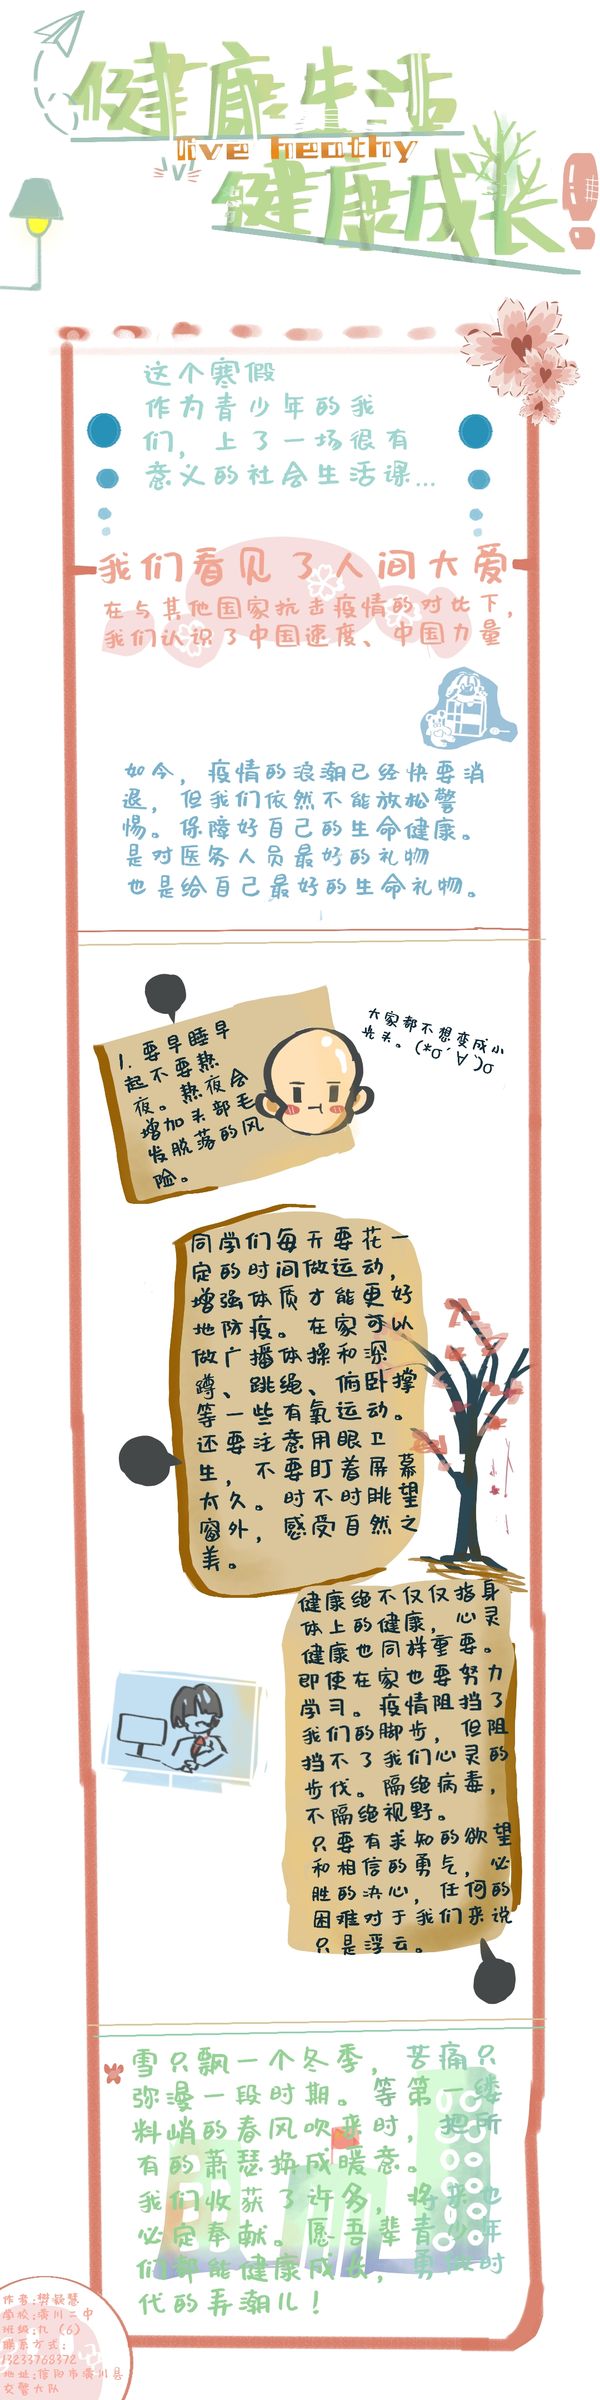 健康生活
live heathy
健康成长!
这个寒假
作为青少年的我
们，上了一场很有
意义的社会生活课…
我们看见了人间大爱
在与其他国家抗击疫情的对比下，
我们认识了中国速度、中国力量
如今，疫情的浪潮已经快要消
退，但我们依然不能放松警
惕。保障好自己的生命健康。
是对医务人员最好的礼物
也是给自己最好的生命礼物。
1.要早睡早
起不要熬
夜。熬夜会
增加头部毛
发脱落的风
险。
大家都不想变成小
光头。(*σ´∀`)σ
同学们每天要花一
定的时间做运动，
增强体质才能更好
地防疫。在家可以
做广播体操和深
蹲、跳绳、俯卧撑
等一些有氧运动。
还要注意用眼卫
生，不要盯着屏幕
太久。时不时眺望
窗外，感受自然之
美。
健康绝不仅仅指身
体上的健康，心灵
健康也同样重要。
即使在家也要努力
学习。疫情阻挡了
我们的脚步，但阻
挡不了我们心灵的
步伐。隔绝病毒，
不隔绝视野。
只要有求知的欲望
和相信的勇气，必
胜的决心，任何的
困难对于我们来说
只是浮云。
雪只飘一个冬季，苦痛只
弥漫一段时期。等第一缕
料峭的春风吹来时，把所
有的萧瑟换成暖意。
我们收获了许多，将来也
必定奉献。愿吾辈青少年
们都能健康成长，勇做时
代的弄潮儿！
作者:樊颖慧
学校:潢川二中
班级:九（6）
联系方式:
13233768372
地址:信阳市潢川县
交警大队